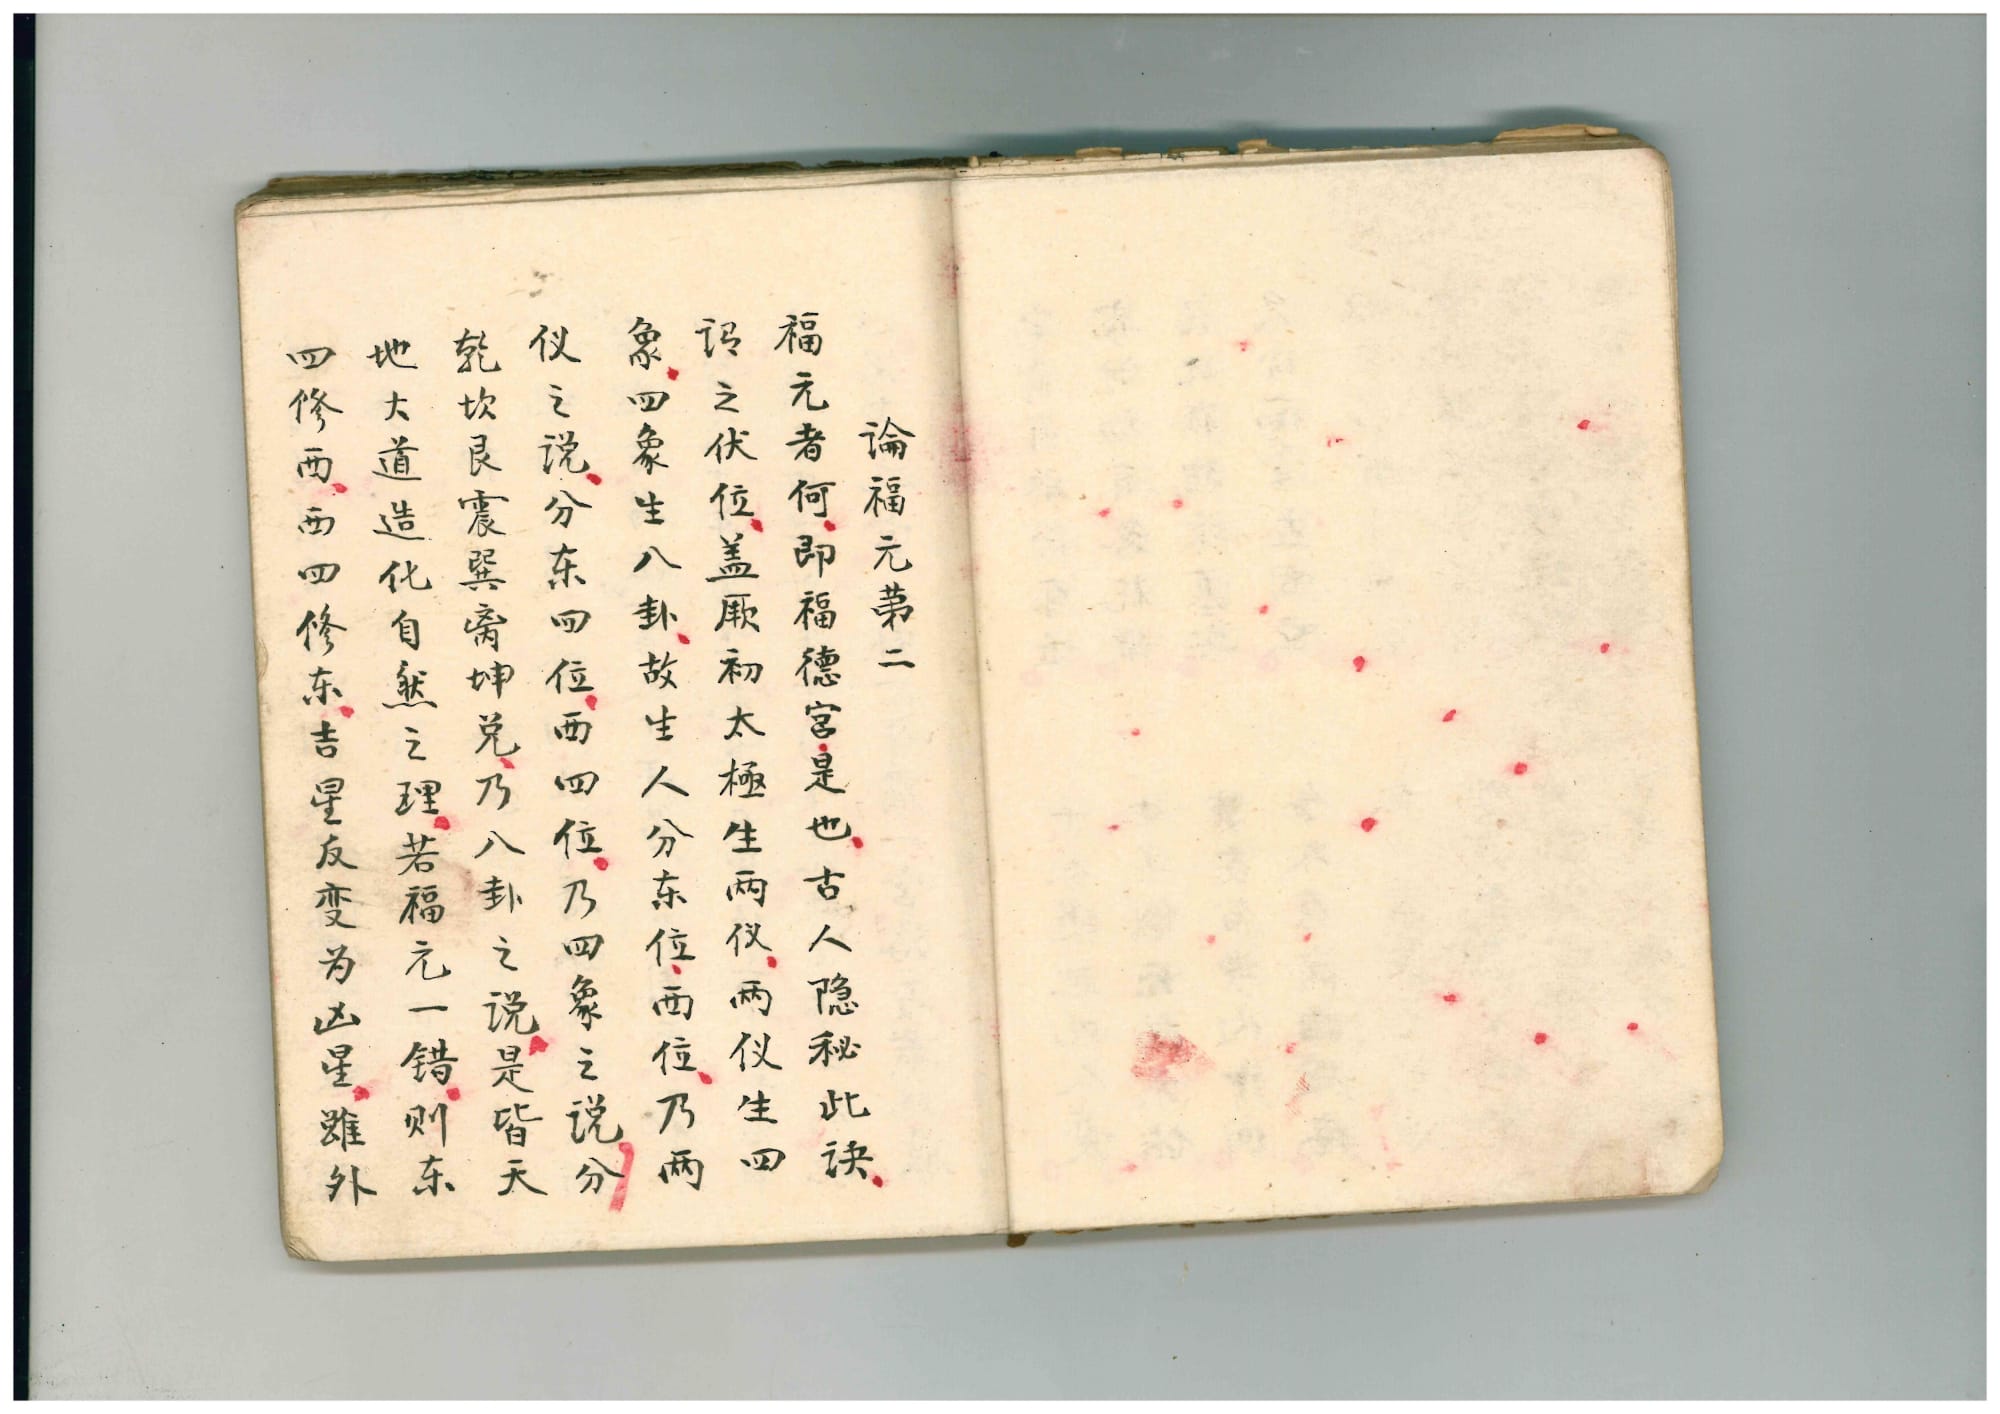 論福元苐二
福元者何即福德宮是也古人隐秘此诀
谓之伏位盖厥初太極生两仪两仪生四
象四象生八卦故生人分东位西位乃两
仪之说分东四位西四位乃四象之说分
乾坎艮震巽离坤兑乃八卦之说是皆天
地大道造化自然之理若福元一错则东
四修西西四修东吉星反变为凶星雖外